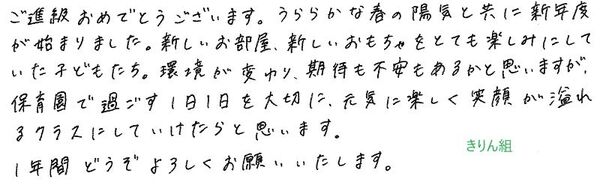 ご進級おめでとうございます。うららかな春の陽気と共に新年度
が始まりました。新しいお部屋、新しいおもちゃをとても楽しみにして
いた子どもたち。環境が変わり、期待も不安もあるかと思いますが、
保育園で過ごす1日1日を大切に、元気に楽しく笑顔が溢れ
るクラスにしていけたらと思います。
1年間どうぞよろしくお願いいたします。
きりん組